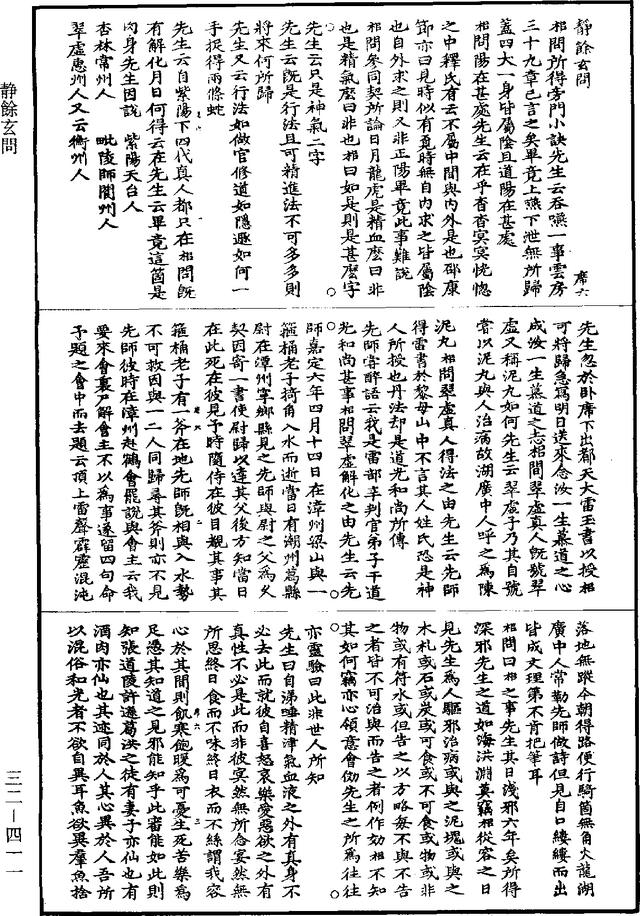 靜餘玄問
靜餘玄問 席六
相問所得旁門小訣先生云吞嚥一事雲房
三十九章已言之矣畢竟上嚥下泄無所歸
蓋四大一身皆屬陰且道陽在甚處
相問陽在甚處先生云在乎杳杳冥冥恍惚
之中釋氏有云不屬中間與內外是也邵康
節亦曰見時似有覓時無自內求之皆屬陰
也自外求之則又非正陽畢竟此事難說
相問參同契所論日月龍虎是精血麼曰非
也是精氣麼曰非也相曰如是則是甚麼字
先生云只是神氣二字
先生云既是行法且可精進法不可多多則
將來何所歸
先生又云行法如做官修道如隱遯如何一
手捉得兩條蛇
先生云自紫陽下四代真人都只在相問既
有解化月日何得云在先生云畢竟這箇是
肉身先生因說 紫陽天台人
杏林常州人 毗陵師閬州人
翠虛惠州人又云衢州人
先生忽於臥席下出都天大雷玉書以授相
可將歸急寫明日送來念汝一生慕道之心
成汝一生慕道之志相問翠虛真人既號翠
虛又稱泥丸如何先生云翠虛子乃其自號
常以泥丸與人治病故湖廣中人呼之為陳
泥丸相問翠虛真人得法之由先生云先師
得雷書於黎母山中不言其人姓氏恐是神
人所授也丹法却是道光和尚所傳
先師嘗醉語云我是雷部辛判官弟子干道
光和尚甚事相問翠虛解化之由先生云先
師嘉定六年四月十四日在漳州梁山與一
箍桶老子掎角入水而逝當日有潮州縣
尉在潭州寧鄉縣見之先師與尉之父為久
契因寄一書使尉歸以達其父後方知當日
在此死在彼見予時隨侍在彼日親其事其
箍桶老子有一斧在地先師既相與入水勢
不可救因與一二人同歸尋其斧則亦不見
先師彼時在漳州赴鶴會罷說與會主云我
要來會裏尸解會主不以為事遂留四句命
予題之會中而去題云頂上雷聲霹靂混沌
落地無蹤今朝得路便行騎箇無角火龍湖
廣中人常勤先師做詩但見自口縷縷而出
皆成文理第不肯把筆耳
相問曰相之事先生其日淺邪六年矣所得
深邪先生之道如海洪淵莫竊相從容之日
見先生為人驅邪治病或與之泥塊或與之
木札或石或炭或可食或不可食或物或非
物或有符水或但告之以方略每不與不告
之者皆不可治與而告之者例作効相不知
其如何竊亦心領意會倣先生之所為往往
亦靈驗曰此非世人所知
先生曰自涕唾精津氣血液之外有真身不
必去此而就彼自喜怒哀樂愛惡欲之外有
真性不必是此而非彼寞然無所念寞然無
所思終日食而不味終日衣而不絲謂我容
心於其間則飢寒飽暖為可憂生死苦樂為
足慮其知道之見邪能知乎此審能如此則
知張道陵許遜葛洪之徒有妻子亦仙也有
酒肉亦仙也其迹同於人其心異於人吾所
以混俗和光者不欲自異耳魚欲異羣魚捨
三二—四一一